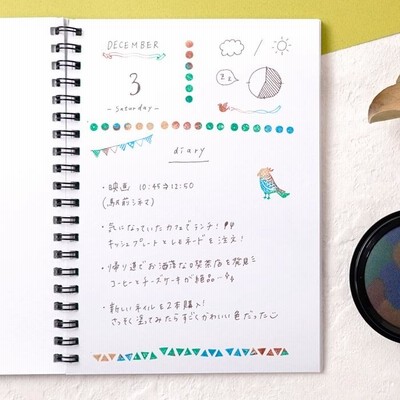 DECEMBER
3
- Saturday -
z z
diary
・映画 10:45→12:50
(駅前シネマ)
・気になっていたカフェでランチ!
キッシュプレートとレモネードを注文!
・帰り道でお洒落な喫茶店を発見
コーヒーとチーズケーキが絶品…
・新しいネイルを2本購入!
さっそく塗ってみたらすごくかわいい色だった